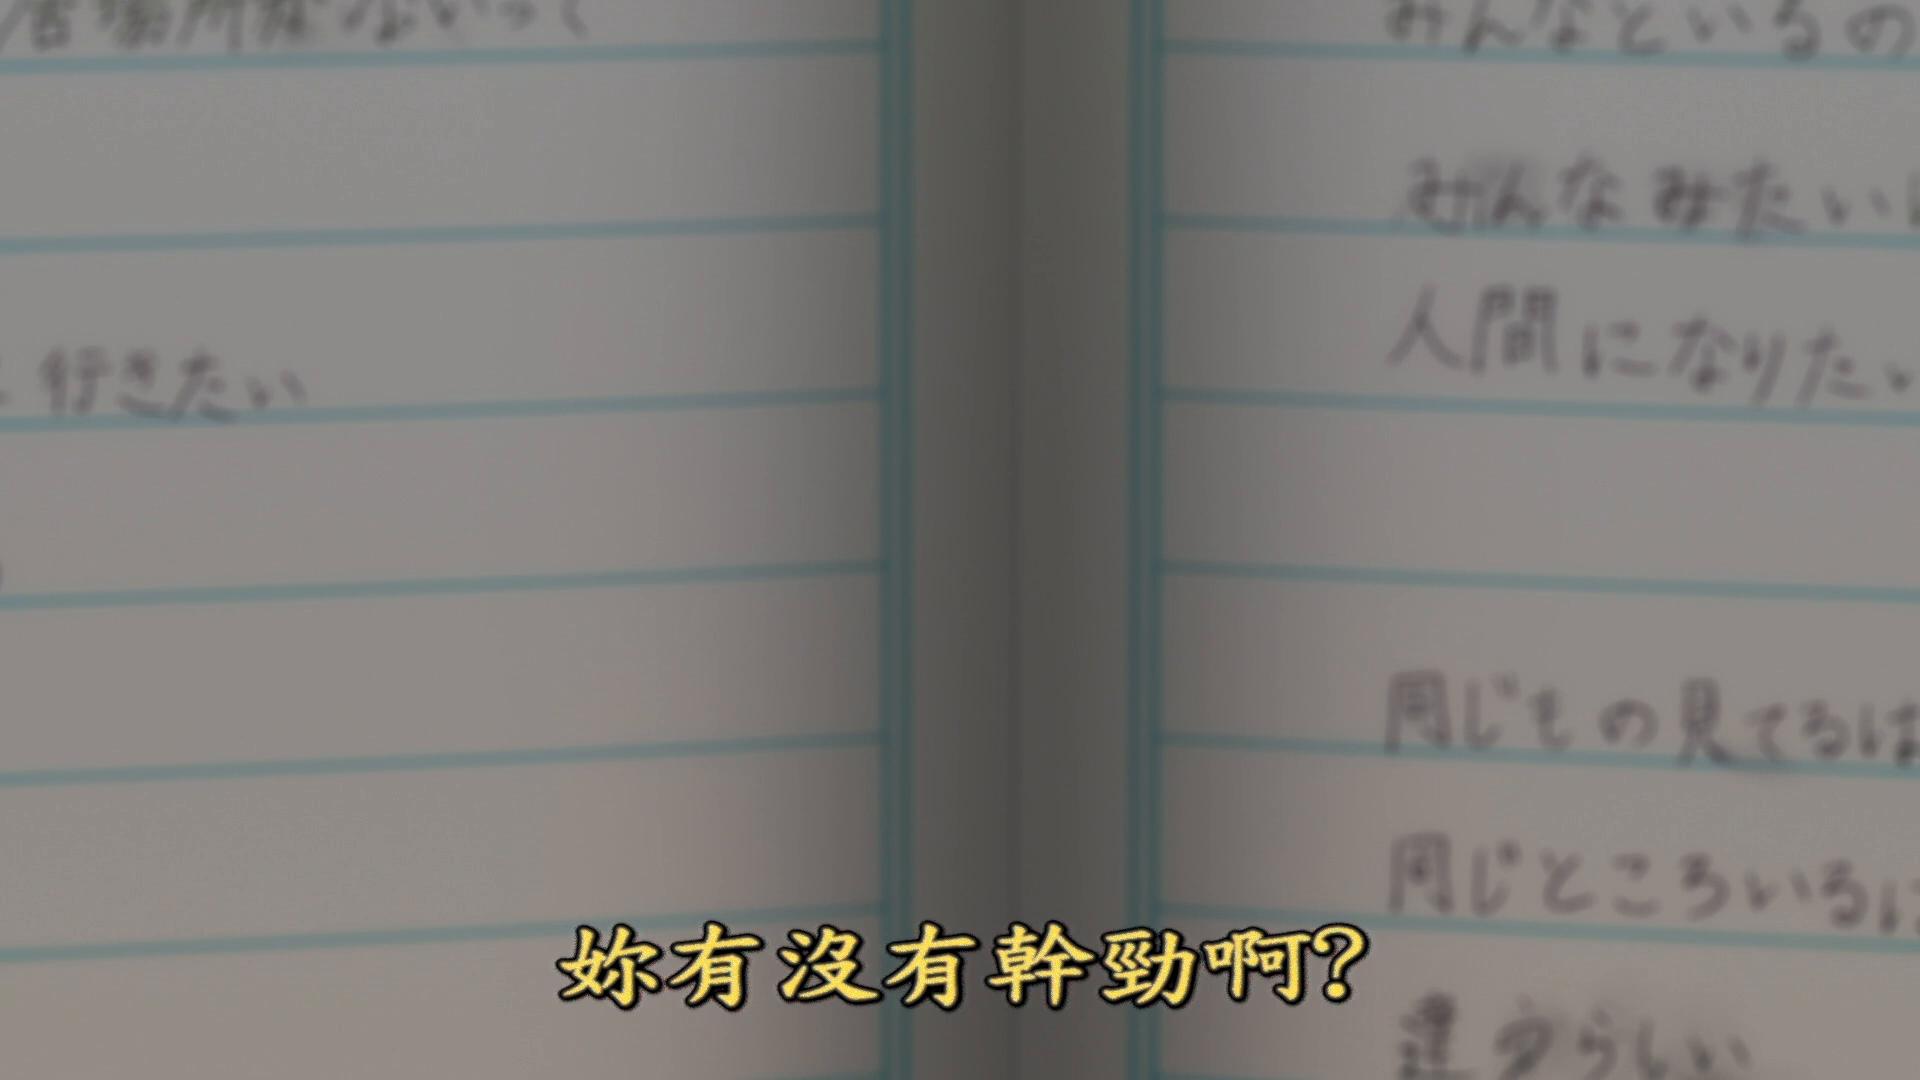 居場所がないって
行きたい
みんなといるの
みんなみたいに
人間になりたい
同じもの見てるは
同じところいるは
違うらしい
妳有沒有幹勁啊?